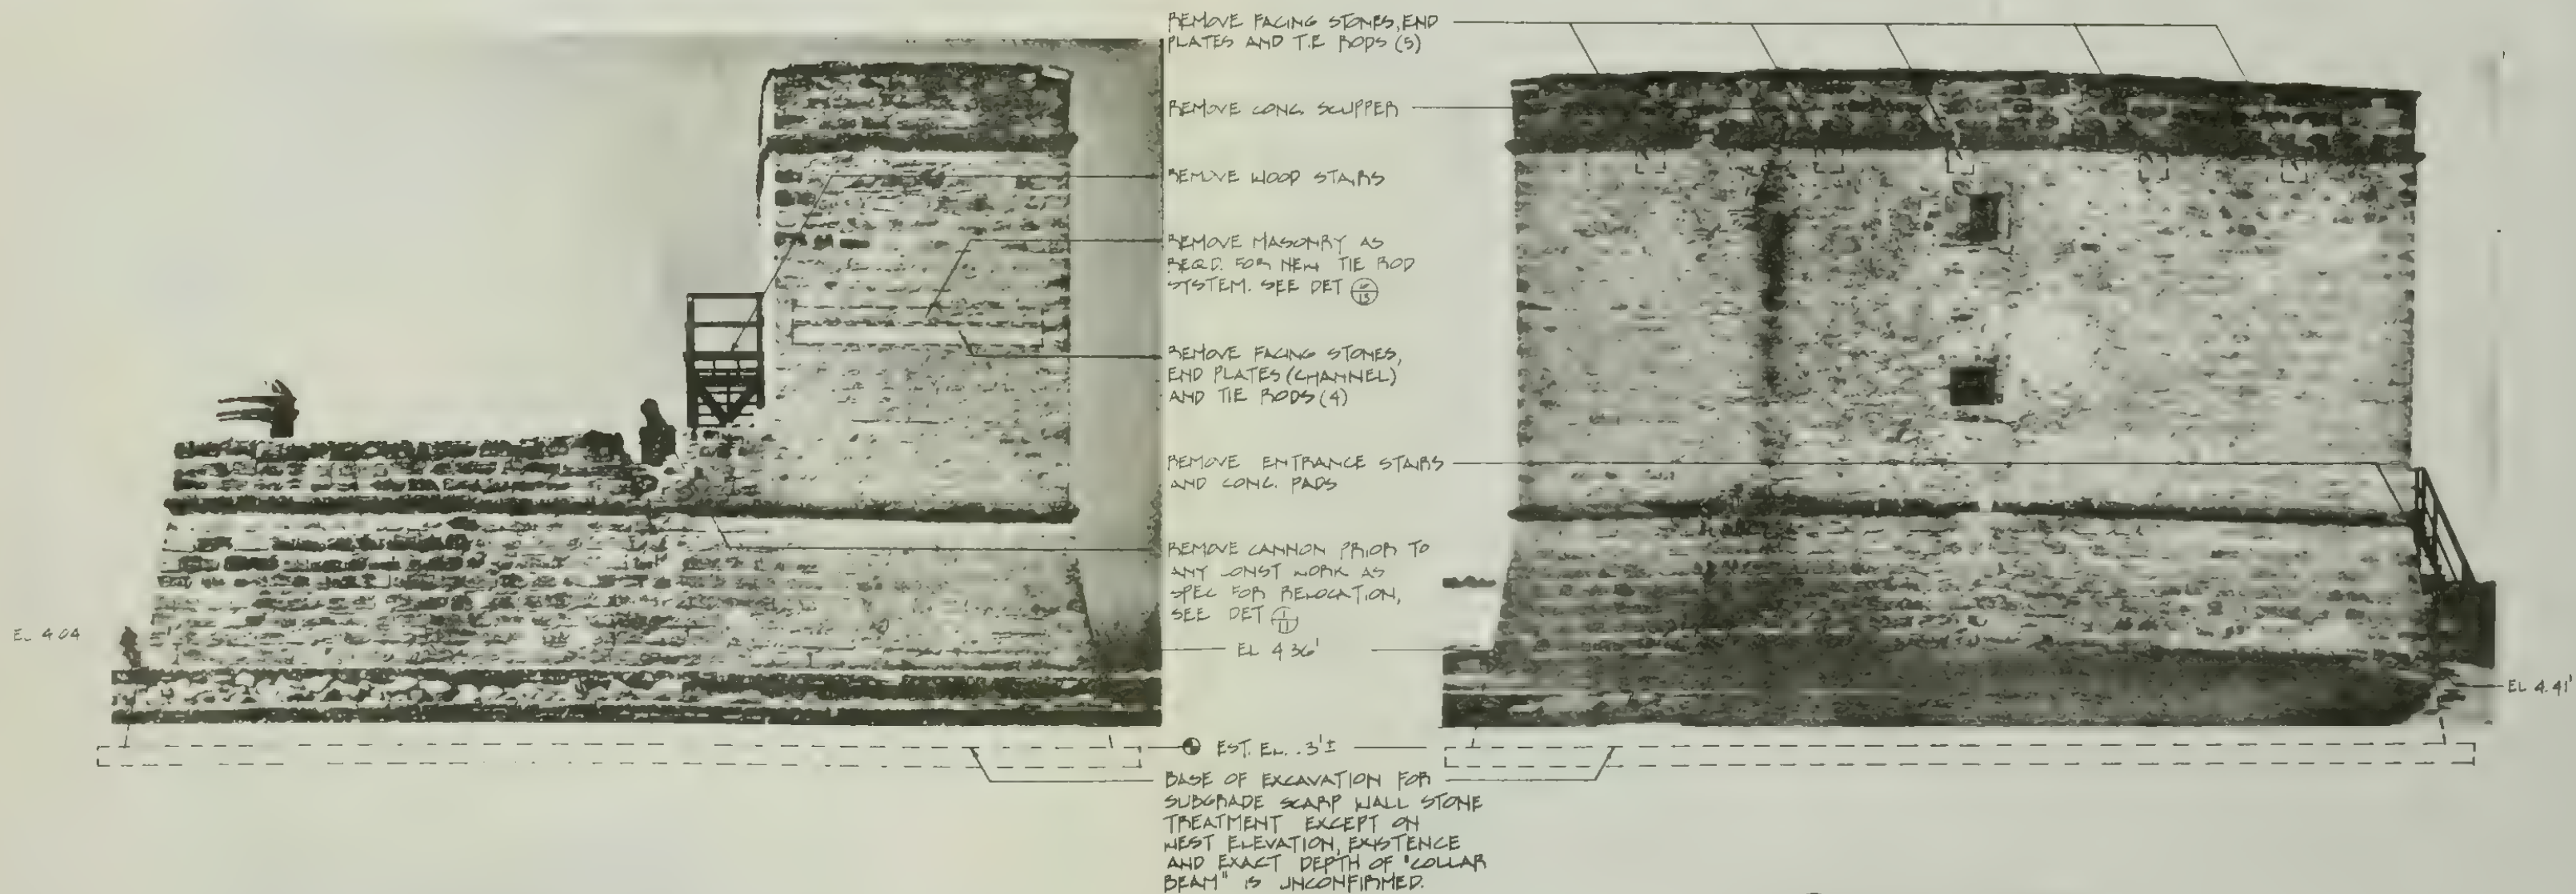 REMOVE FACING STONES, END
PLATES AND TIE RODS (5)
REMOVE CONC. SCUPPER
REMOVE WOOD STAIRS
REMOVE MASONRY AS
REQ'D. FOR NEW TIE ROD
SYSTEM. SEE DET
13
REMOVE FACING STONES,
END PLATES (CHANNEL)
AND TIE RODS (4)
REMOVE ENTRANCE STAIRS
AND CONC. PADS
REMOVE CANNON PRIOR TO
ANY CONST WORK AS
SPEC FOR RELOCATION,
SEE DET 1
11
EL 4.04
EL 4.36'
EL 4.41'
EST. EL. .3'±
BASE OF EXCAVATION FOR
SUBGRADE SCARP WALL STONE
TREATMENT EXCEPT ON
WEST ELEVATION, EXISTENCE
AND EXACT DEPTH OF "COLLAR
BEAM" IS UNCONFIRMED.